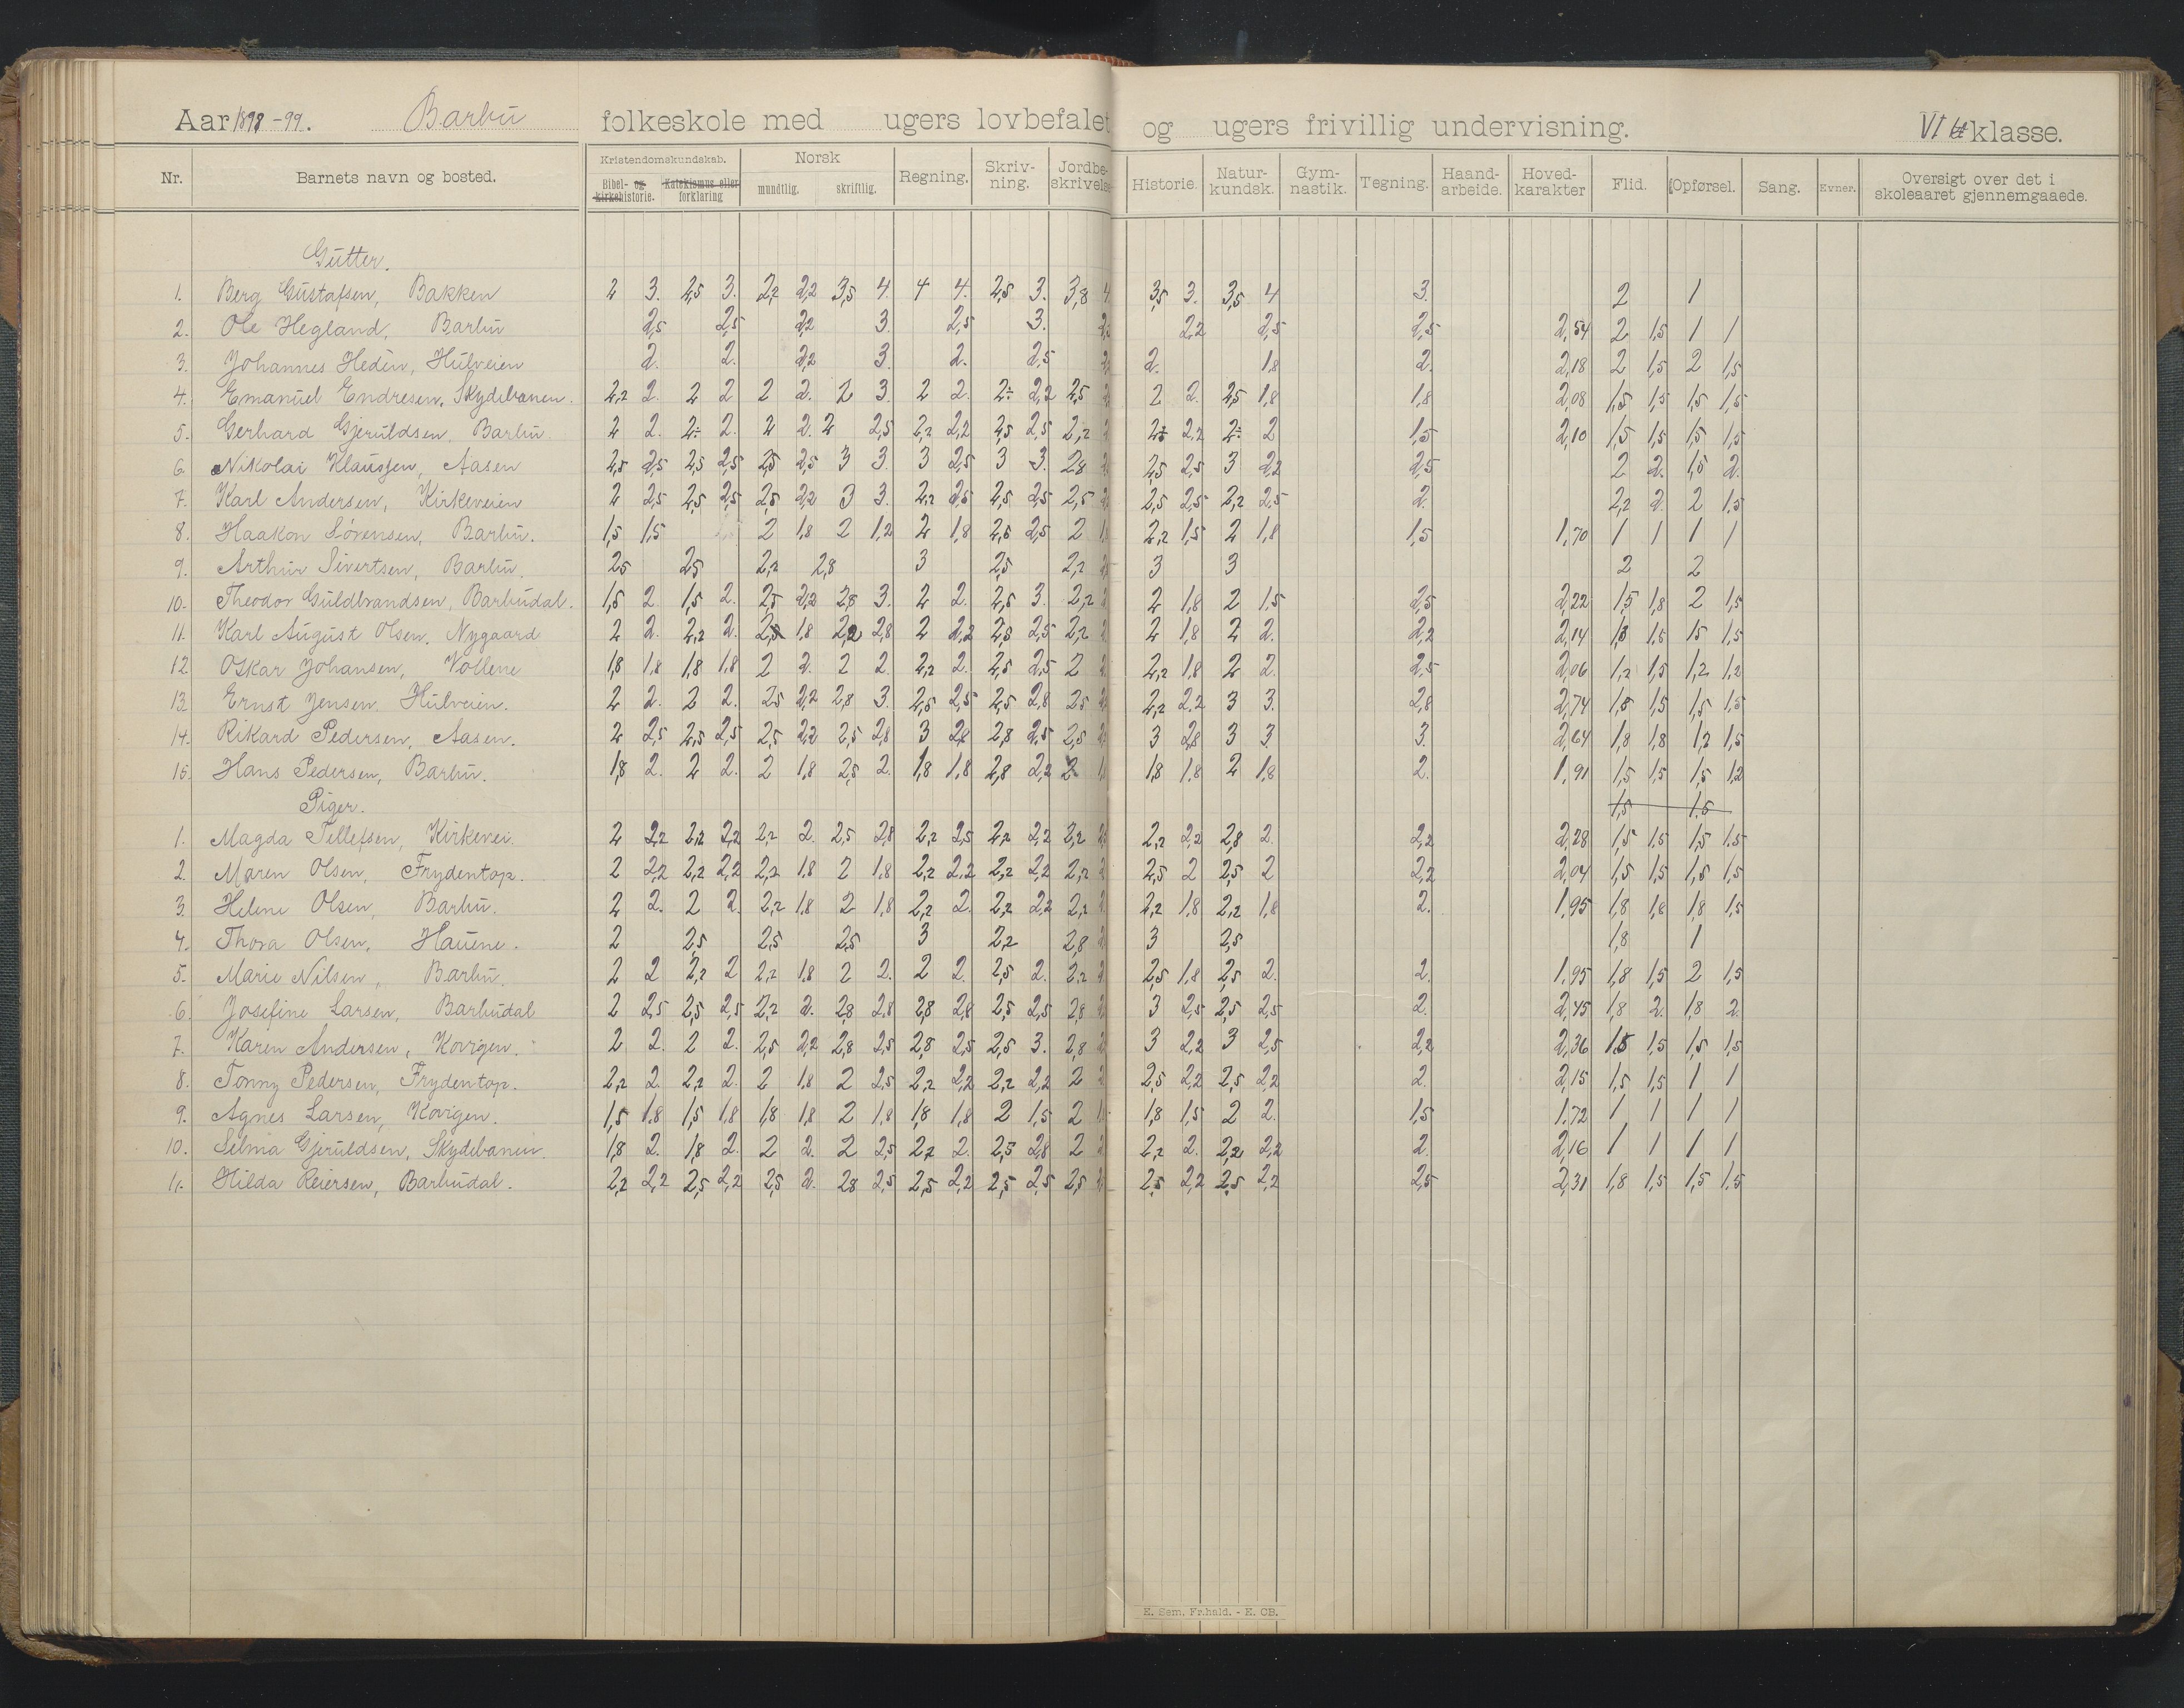 Aar 1898-99. Barbu folkeskole med ugers lovbefalet og ugers frivillig undervisning. VI klasse.
Nr. Barnets navn og bosted. Kristendomskundskab. Bibel- og kirkehistorie. Katekismus eller forklaring Norsk mundtlig. skriftlig. Regning. Skriv-ning. Jordbe-skrivelse Historie. Natur-kundsk. Gym-nastik. Tegning. Haand-arbeide. Hoved-karakter Flid. Opførsel. Sang. Evner. Oversigt over det i skoleaaret gjennemgaaede.
Gutter.
1. Berg Gustafsen, Bakken 2 3. 2,5 3. 2,2 2,2 3,5 4. 4 4. 2,5 3. 3,8 4 3,5 3. 3,5 4 3. 2 1
2. Ole Hegland, Barbu 2,5 2,5 2,2 3. 2,5 3. 2,2 2,5 2,5 2,54 2 1,5 1 1
3. Johannes Hedin, Hulveien 2. 2. 2,2 3. 2. 2,5 2. 1,8 2. 2,18 2 1,5 2 1,5
4. Emanuel Endresen, Skydebanen. 2,2 2. 2 2 2 2. 2 3. 2 2. 2÷ 2,2 2,5 2 2. 2,5 1,8 1,8 2,08 1,5 1,5 1,5 1,5
5. Gerhard Gjeruldsen, Barbu. 2 2. 2÷ 2. 2 2. 2 2,5 2,2 2,2 2,5 2,5 2,2 2÷ 2,2 2÷ 2 1,5 2,10 1,5 1,5 1,5 1,5
6. Nikolai Klausen, Aasen 2,5 2,5 2,5 2,5 2,5 2,5 3 3. 3 2,5 3 3. 2,8 2,5 2,5 3 2,2 2,5 2 2. 1,5 2.
7. Karl Andersen, Kirkeveien 2 2,5 2,5 2,5 2,5 2,2 3 3. 2,2 2,5 2,5 2,5 2,5 2,5 2,5 2,2 2,5 2. 2,2 2. 2 1,5
8. Haakon Sörensen, Barbu. 1,5 1,5 2 1,8 2 1,2 2 1,8 2,5 2,5 2 2,2 1,5 2 1,8 1,5 1,70 1 1 1 1
9. Arthur Sivertsen, Barbu. 2,5 2,5 2,2 2,8 3 2,5 2,2 3 3 2 2
10. Theodor Guldbrandsen, Barbudal. 1,5 2 1,5 2. 2,5 2,2 2,8 3. 2 2. 2,5 3. 2,2 2 1,8 2 1,5 2,5 2,22 1,5 1,8 2 1,5
11. Karl August Olsen, Nygaard 2 2. 2,2 2. 2,5 1,8 2,2 2,8 2 2,2 2,5 2,5 2,2 2 1,8 2 2. 2,2 2,14 1,5 1,5 1,5
12. Oskar Johansen, Vollene 1,8 1,8 1,8 1,8 2 2. 2 2. 2,2 2. 2,5 2,5 2 2,2 1,8 2 2. 2,5 2,06 1,2 1,5 1,2 1,2
13. Ernst Jensen, Hulveien. 2 2. 2 2. 2,5 2,2 2,8 3. 2,5 2,5 2,5 2,8 2,5 2,2 2,2 3 3. 2,8 2,74 1,5 1,5 1,5 1,5
14. Rikard Pedersen, Aasen. 2 2,5 2,5 2,5 2,5 2,2 2,5 2,8 3 2,8 2,8 2,5 2,5 3 2,8 3 3 3. 2,64 1,8 1,8 1,2 1,5
15. Hans Pedersen, Barbu. 1,8 2. 2 2. 2 1,8 2,5 2. 1,8 1,8 2,8 2,2 2 1,8 1,8 2 1,8 2. 1,91 1,5 1,5 1,5 1,2
Piger. 1,5 1,5
1. Magda Tellefsen, Kirkevei. 2 2,2 2,2 2,2 2,2 2. 2,5 2,8 2,2 2,5 2,2 2,2 2,2 2,2 2,2 2,8 2. 2,2 2,28 1,5 1,5 1,5 1,5
2. Maren Olsen, Frydentop. 2 2,2 2,2 2,2 2,2 1,8 2 1,8 2,2 2,2 2,2 2,2 2,2 2,5 2 2,5 2 2,2 2,04 1,5 1,5 1,5 1,5
3. Helene Olsen, Barbu. 2 2. 2 2. 2,2 1,8 2 1,8 2,2 2. 2,2 2,2 2,2 2,2 1,8 2,2 1,8 2. 1,95 1,8 1,8 1,8 1,5
4. Thora Olsen, Hauene. 2 2,5 2,5 2,5 3 2,2 2,8 3 2,5 1,8 1
5. Marie Nilsen, Barbu. 2 2 2,2 2 2,2 1,8 2 2. 2 2. 2,5 2. 2,2 2,5 1,8 2,5 2. 2. 1,95 1,8 1,5 2 1,5
6. Josefine Larsen, Barbudal 2 2,5 2,5 2,5 2,2 2. 2,8 2,8 2,8 2,8 2,5 2,5 2,8 3 2,5 2,5 2,5 2. 2,45 1,8 2. 1,8 2.
7. Karen Andersen, Kovigen. 2 2. 2 2. 2,5 2,2 2,8 2,5 2,8 2,5 2,5 3. 2,8 3 2,2 3 2,5 2,2 2,36 1,5 1,5 1,5 1,5
8. Tonny Pedersen, Frydentop. 2,2 2 2,2 2. 2 1,8 2 2,5 2,2 2,2 2,2 2,2 2 2,5 2,2 2,5 2,2 2. 2,15 1,5 1,5 1 1
9. Agnes Larsen, Kovigen. 1,5 1,8 1,5 1,8 1,8 1,8 2 1,8 1,8 1,8 2 1,5 2 1,8 1,5 2 2. 1,5 1,72 1 1 1 1
10. Selma Gjeruldsen, Skydebanen. 1,8 2. 1,8 2. 2 2. 2 2,5 2,2 2. 2,5 2,8 2 2,2 2. 2,2 2,2 2. 2,16 1 1 1 1
11. Hilda Reiersen, Barbudal. 2,2 2,2 2,5 2,2 2,5 2. 2,8 2,5 2,5 2,2 2,5 2,5 2,5 2,5 2,2 2,5 2,2 2,5 2,31 1,8 1,5 1,5 1,5
E. Sem. Fr.hald. - E. CB.